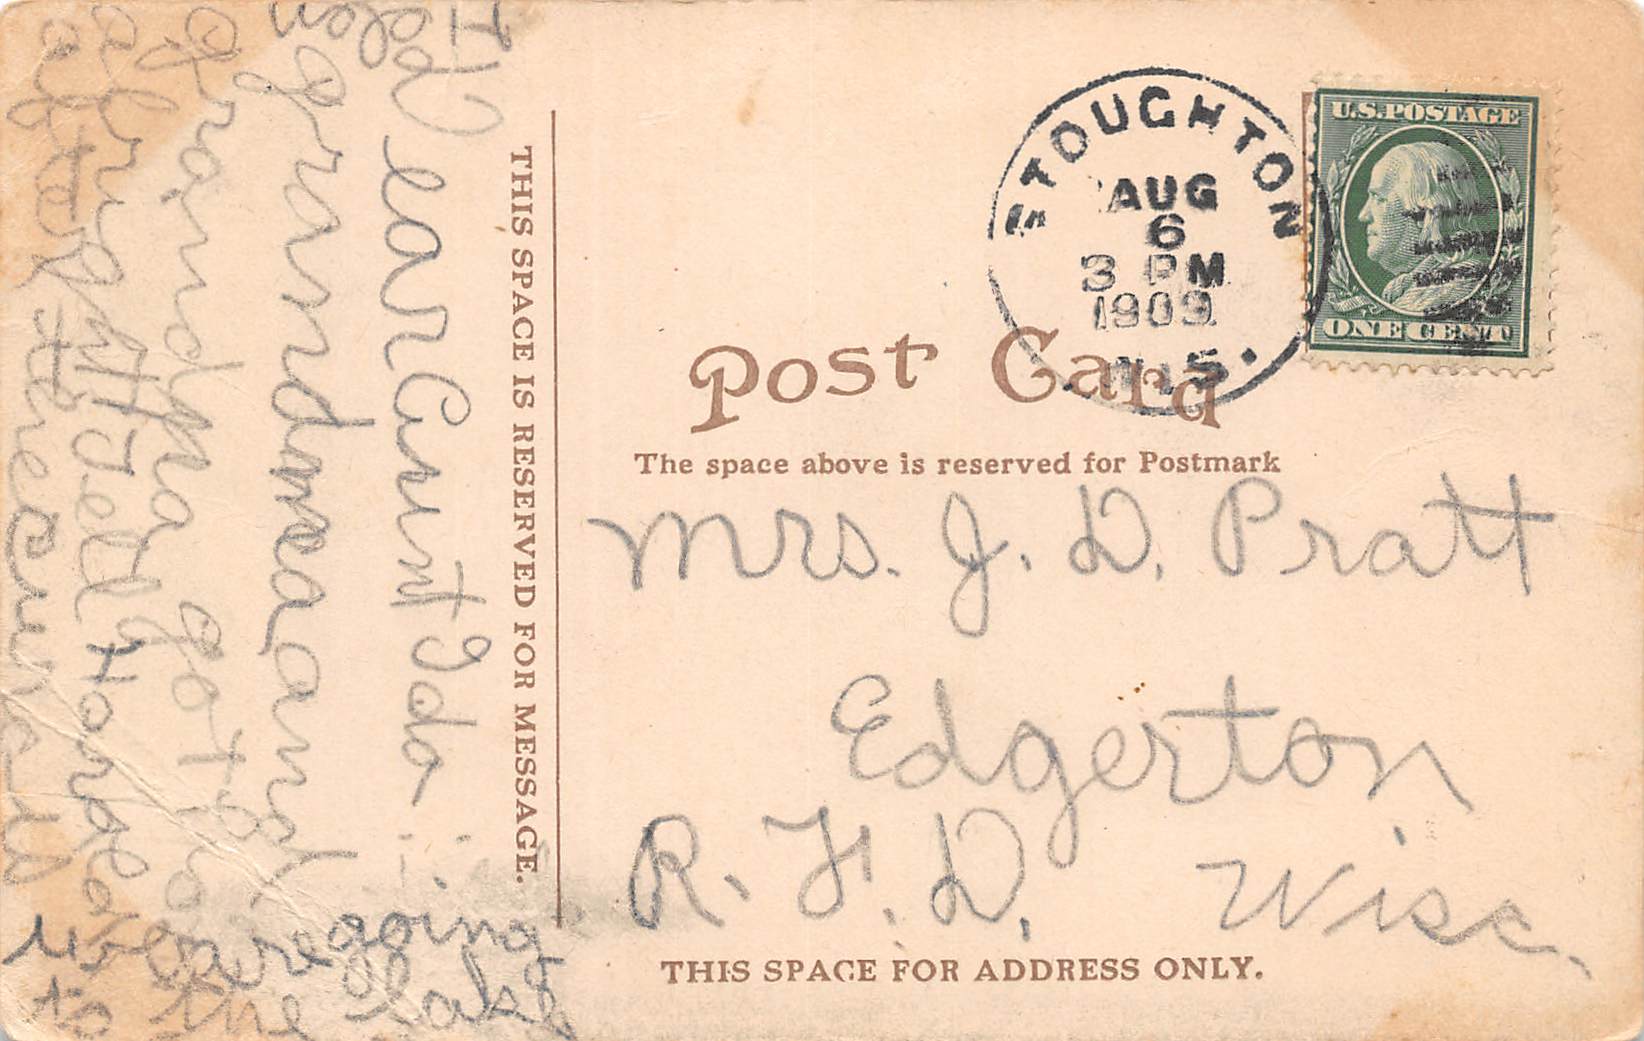 U.S. POSTAGE
ONE CENT
STOUGHTON
AUG
6
3 PM
1909
Post Card
The space above is reserved for Postmark
THIS SPACE IS RESERVED FOR MESSAGE.
Mrs. J. D. Pratt
Edgerton
R. F. D. Wisc.
THIS SPACE FOR ADDRESS ONLY.
Dear Aunt Ida
grandma and
grandpa got
alright Tell
after the
we are going
to the lake